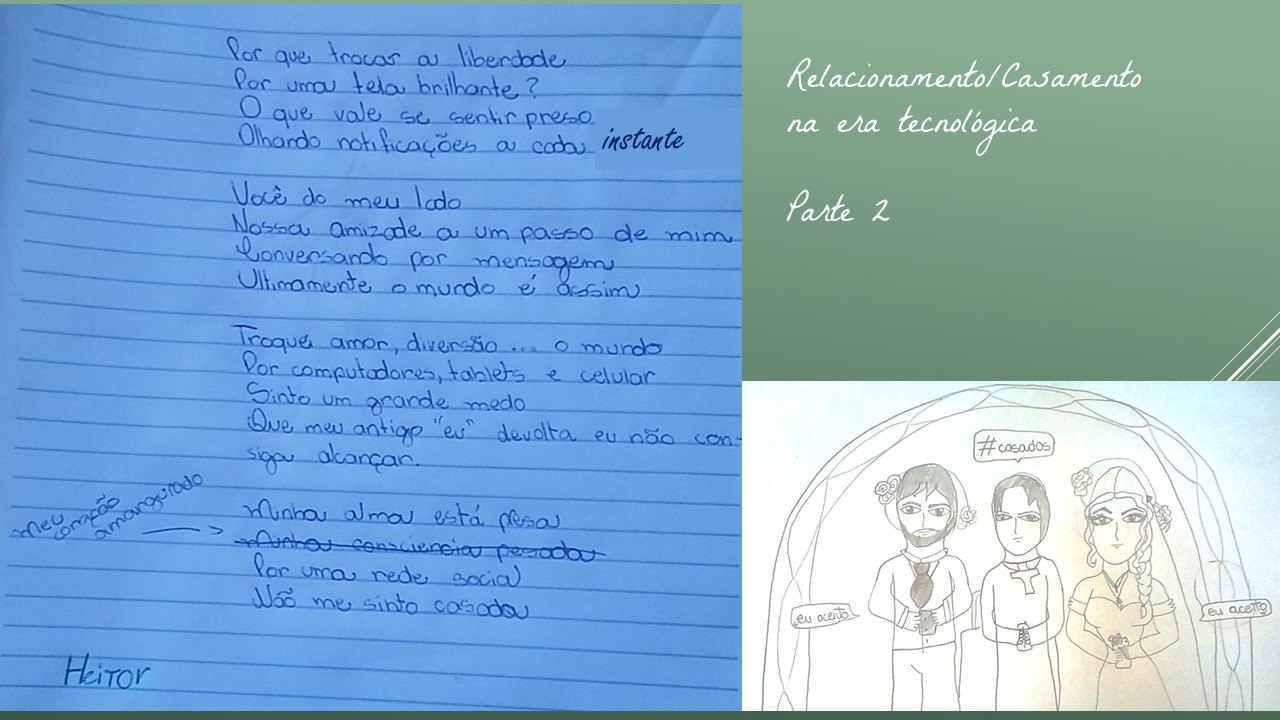 Por que trocar a liberdade
Por uma tela brilhante?
O que vale se sentir preso
Olhando notificações a cada instante
Você do meu lado
Nossa amizade a um passo de mim
Conversando por mensagem
Ultimamente o mundo é assim
Troquei amor, diversão ... o mundo
Por computadores, tablets e celular
Sinto um grande medo
Que meu antigo "eu" devolta eu não con-
siga alcançar.
Minha alma está presa
meu coração amargurado
Minha consciencia pesada
Por uma rede social
Não me sinto casada
Heitor
Relacionamento/Casamento
na era tecnológica
Parte 2
#casados
eu aceito
eu aceito